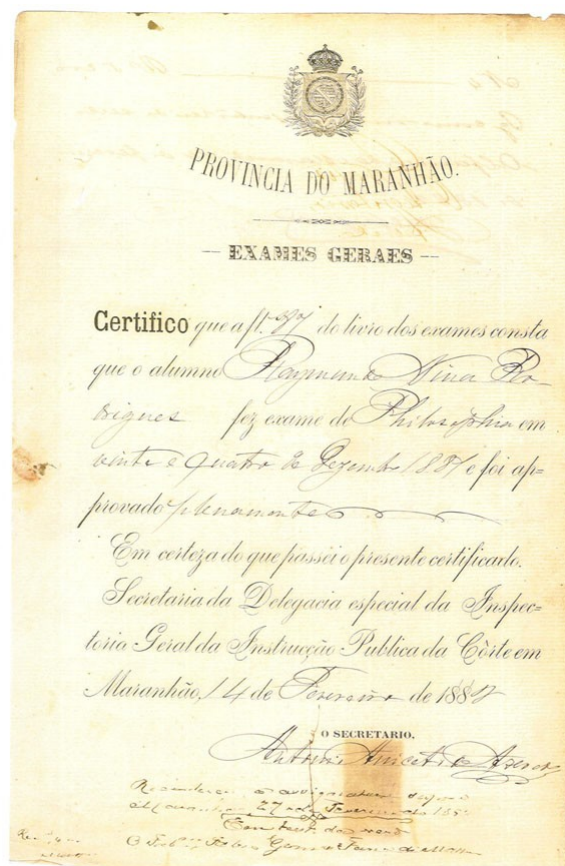 PROVINCIA DO MARANHÃO.
EXAMES GERAES
Certifico que a fl. 97 do livro dos exames consta
que o alumno Raymundo Nina Ro-
drigues fez exame de Philosophia em
vinte e quatro de Dezembro 1881 e foi ap-
provado plenamente
Em certeza do que passei o presente certificado.
Secretaria da Delegacia especial da Inspec-
toria Geral da Instrucção Publica da Côrte em
Maranhão, 14 de Fevereiro de 1882
O SECRETARIO,
Antonio
27 de Fevereiro